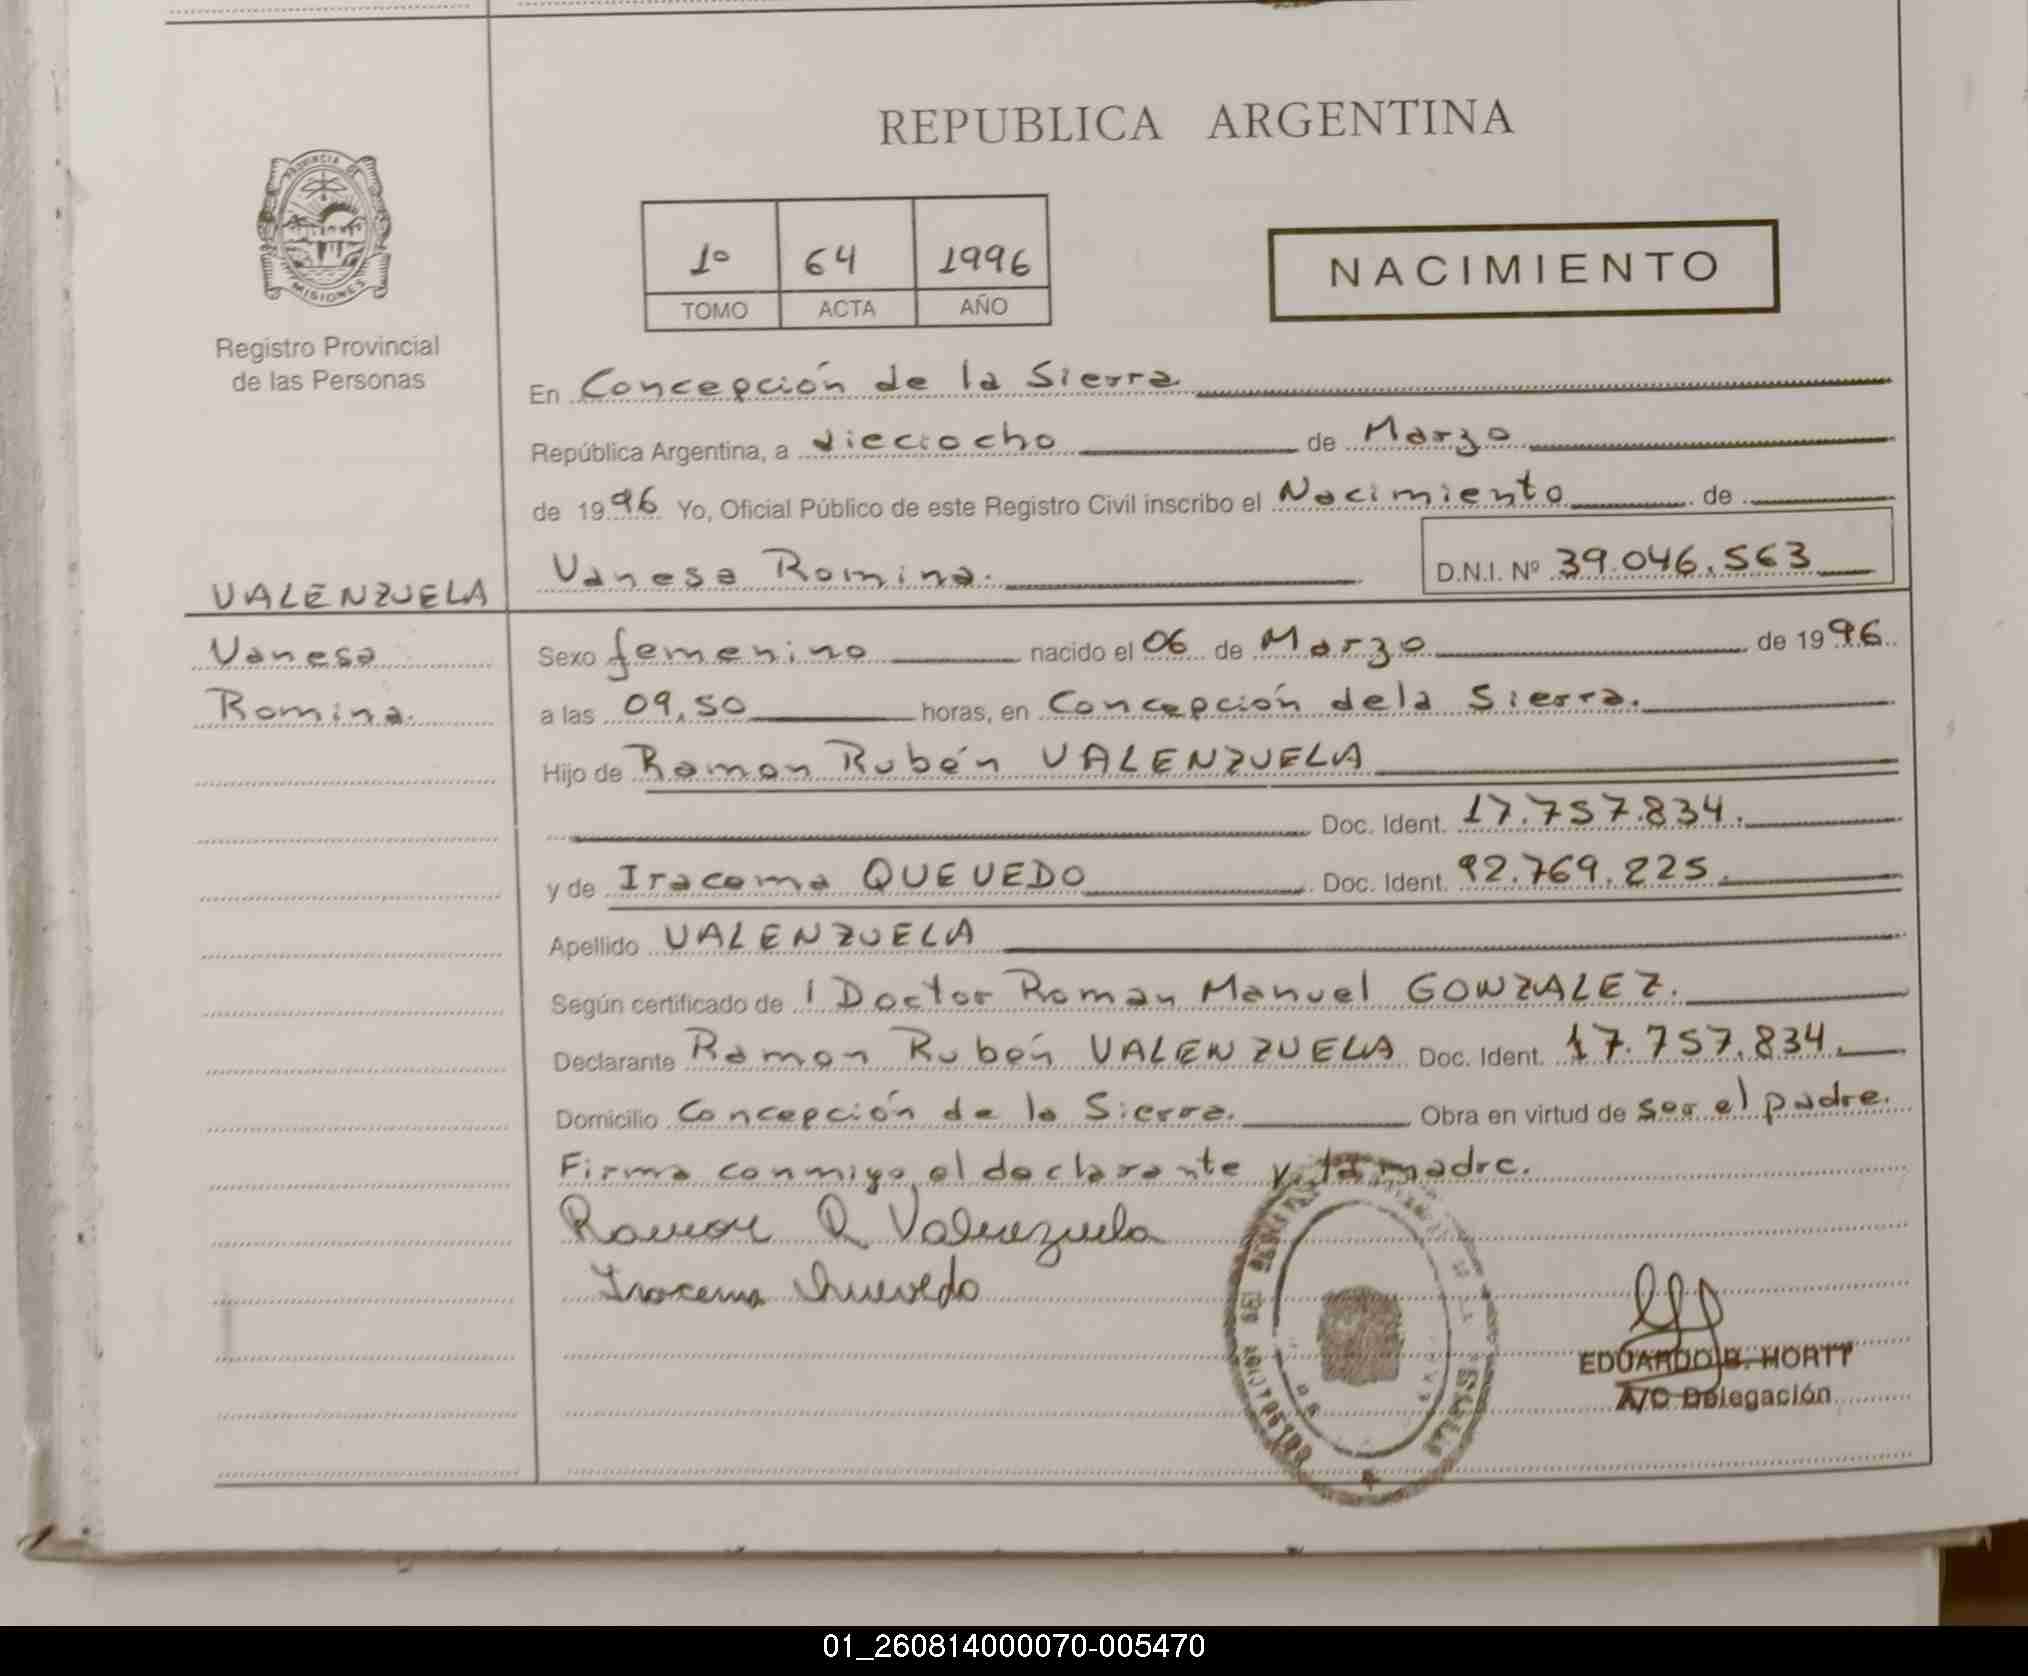 REPUBLICA ARGENTINA
PROVINCIA DE MISIONES
Registro Provincial
de las Personas
1º 64 1996
TOMO ACTA AÑO
NACIMIENTO
En Concepción de la Sierra
República Argentina, a dieciocho de Marzo
de 1996 Yo, Oficial Público de este Registro Civil inscribo el Nacimiento de
Vanesa Romina. D.N.I. Nº 39.046.563
VALENZUELA
Vanesa
Romina.
Sexo femenino nacido el 06 de Marzo de 1996
a las 09,50 horas, en Concepción de la Sierra.
Hijo de Ramon Rubén VALENZUELA
Doc. Ident. 17.757.834.
y de Iracema QUEVEDO Doc. Ident. 92.769.225.
Apellido VALENZUELA
Según certificado de l Doctor Roman Manuel GONZALEZ.
Declarante Ramon Rubén VALENZUELA Doc. Ident. 17.757.834.
Domicilio Concepción de la Sierra. Obra en virtud de ser el padre.
Firma conmigo el declarante y la madre.
Ramon R Valenzuela
Iracema Quevedo
EDUARDO B. HORTT
A/C Delegación
01_260814000070-005470